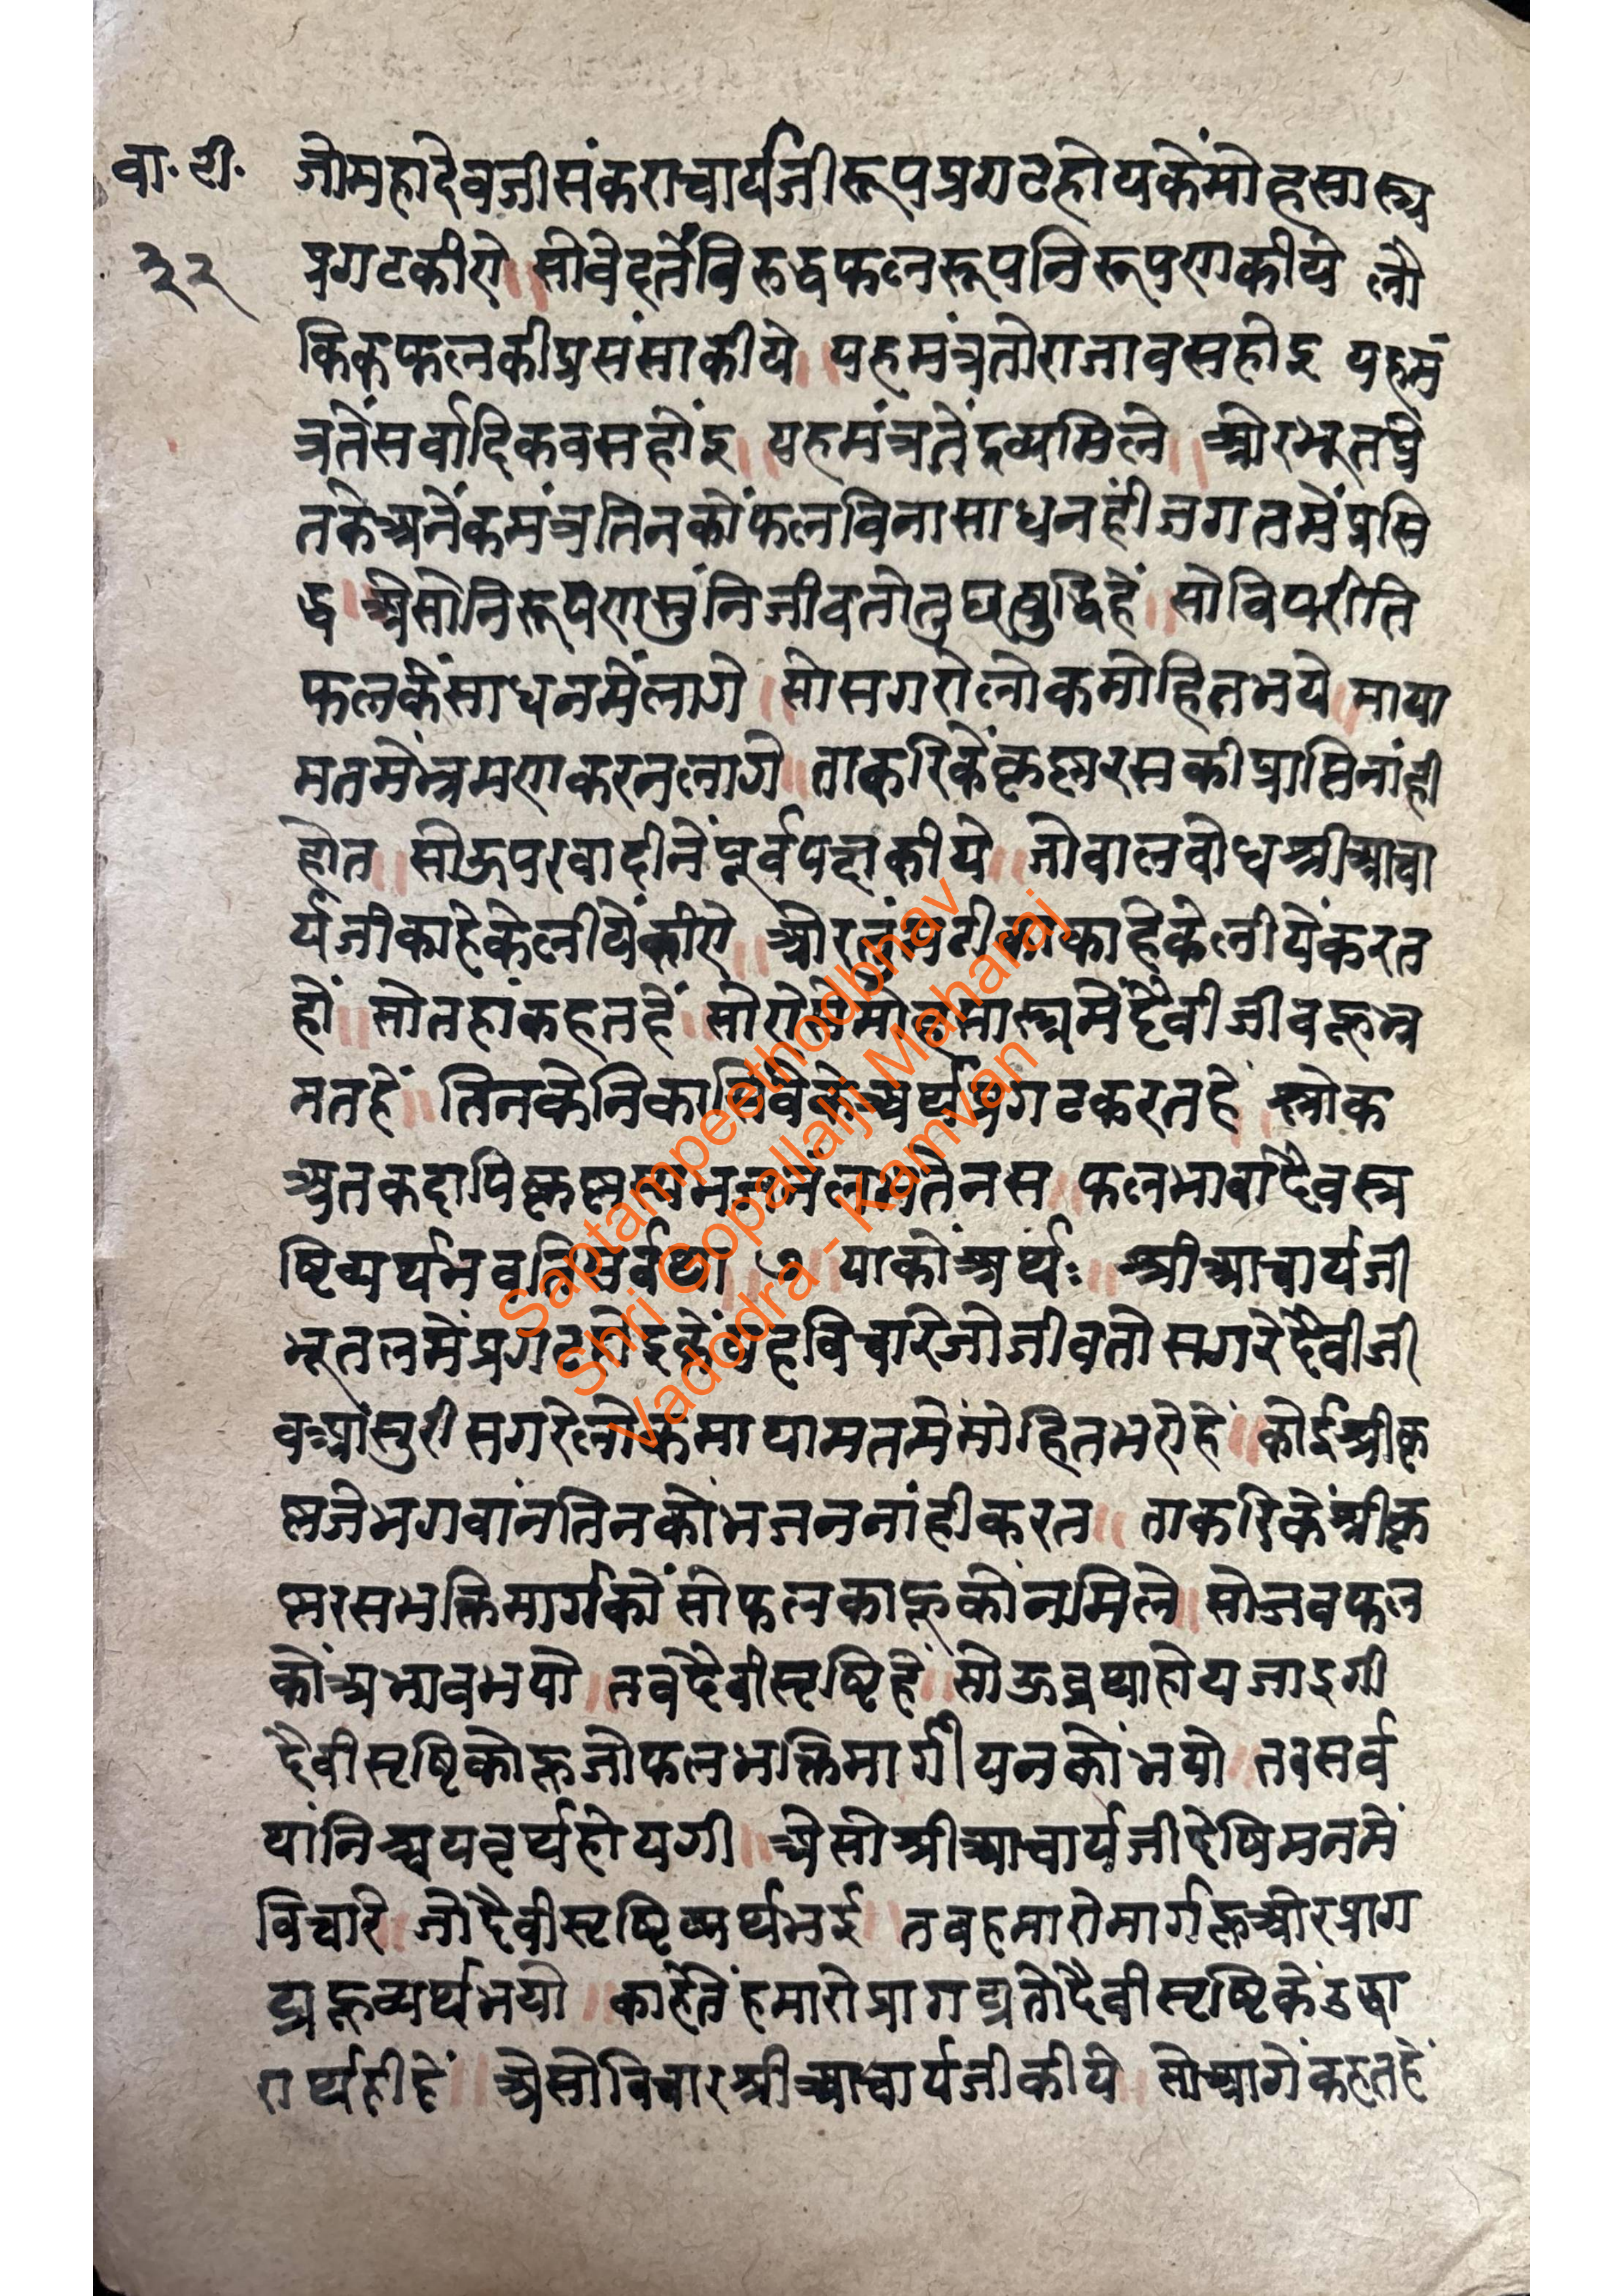 वा. टी.
३२
जोमहादेवजीसंकराचार्यजीरूपप्रगटहोयकेंमोहसास्त्र
प्रगटकीए ॥ सोवेदतेंविरुद्धफलरूपनिरूपणकीये लौ
किकफलकीप्रसंसाकीये ॥ यहमंत्रतोराजावसहोइ यहमं
त्रतेंसर्वादिकवसहोंइ ॥ यहमंत्रतेंद्रव्यमिले ॥ ओरभूतप्रे
तकेअनेंकमंत्रतिनकोंफलविनासाधनहींजगतमेंप्रसि
द्ध । ऐसोनिरूपणसुंनिजीवतोतुछबुद्धिहें ॥ सोविपरीति
फलकेंसाधनमेंलागे ॥ सोसगरोलोकमोहितभये ॥ माया
मतमेंभ्रमणकरनलागे ॥ ताकरिकेंकृष्णरसकीप्राप्तिनांही
होत ॥ सोऊपरवादीनेंपूर्वपक्षकीये ॥ जोबालबोधश्रीआचा
र्यजीकाहेकेलीयेंकीए ॥ ओर काहेकेलीयेंकरत
हों ॥ सोतहांकहतहें ॥ सोएसेमोहसास्त्रमेंदैवीजीवहूभ्र
मतहें ॥ तिनकेनिकासिवेकेअर्थप्रगटकरतहें ॥ श्लोक
फलभावादैवसृ
ष्टिव्यर्थभवतिसर्वथा ७ ॥ याकोंअर्थः ॥ श्रीआचार्यजी
भूतलमेंप्रगटहोइकेंयहविचारेजोजीवतोसगरेदैवीजी
वआसुरीसगरेलोकमायामतमेंमोहितभएहें ॥ कोईश्रीकृ
ष्णजेभगवांनतिनकोंभजननांहीकरत ॥ ताकरिकेंश्रीकृ
ष्णरसभक्तिमार्गकोंसोफलकाहूकोंनमिले ॥ सोजबफल
कोंअभावभयो ॥ तबदैवीसृष्टिहें ॥ सोऊवृथाहोयजाइगी
दैवीसृष्टिकोहूजोफलभक्तिमार्गीयनकोंभयो ॥ तबसर्व
थांनिश्चयवृर्थहोयगी ॥ ऐसोश्रीआचार्यजीदेषिमनमें
विचारे ॥ जोदैवीसृष्टिव्यर्थभई ॥ तबहमारोमार्गहूओरप्राग
ट्यहूव्यर्थभयो ॥ काहेतेंहमारोप्रागट्यतोदैवीसृष्टिकेंउद्धा
रार्थहीहें ॥ ऐसोविचारश्रीआचार्यजीकीये ॥ सोआगेंकहतहें
Saptampeethodbhav
Shri Gopallalji Maharaj
Vadodra - Kamvan